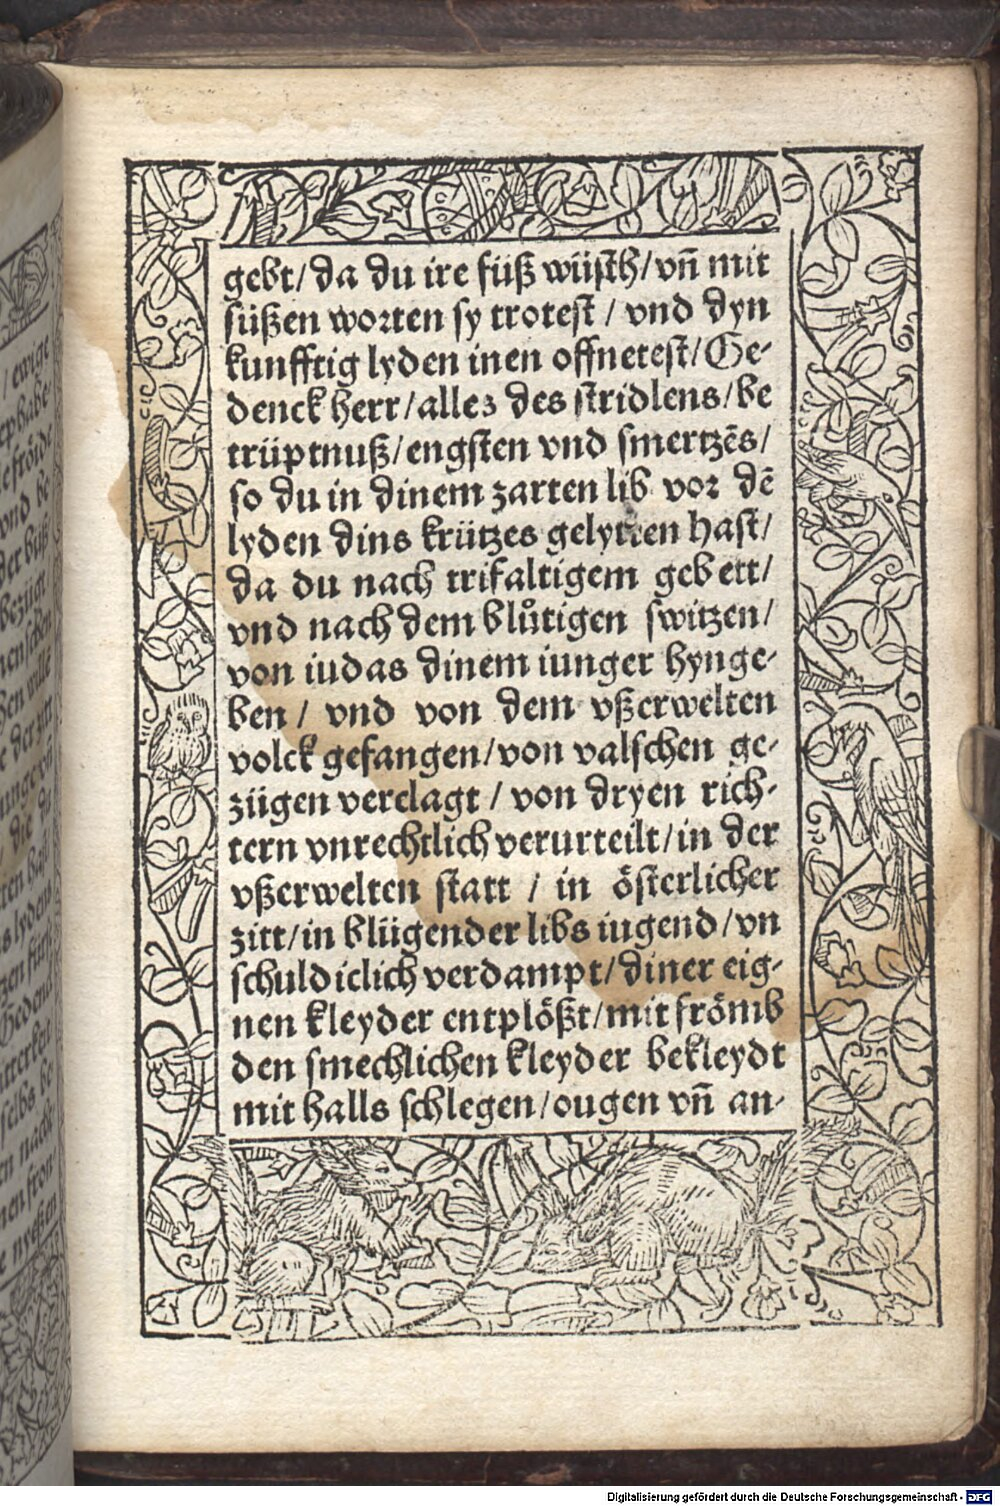 gebt/da du ire füß wüscth/vñ mit
süßen worten sy trotest / vnd dyn
kunfftig lyden inen offnetest/Ge-
denck herr/alles des stridlens/be
trüptnuß/engsten vnd smertzēs/
so du in dinem zarten lib vor dē
lyden dins krützes gelytten hast/
da du nach trifaltigem gebett/
vnd nach dem blůtigen switzen/
von iudas dinem iunger hynge-
ben / vnd von dem vßerwelten
volck gefangen/von valschen ge-
zügen verclagt / von dryen rich-
tern vnrechtlich verurteilt/in der
vßerwelten statt / in österlicher
zitt/in blügender libs iugend/vn
schuldiclich verdampt/diner eig-
nen kleyder entplößt/mit frömb
den smechlichen kleyder bekleydt
mit halls schlegen/ougen vñ an-
/ ewige
vnd be
der buß
bezügt
hen wille
e der zitt
/ die du
Gedenck
selbs be
Digitalisierung gefördert durch die Deutsche Forschungsgemeinschaft - DFG